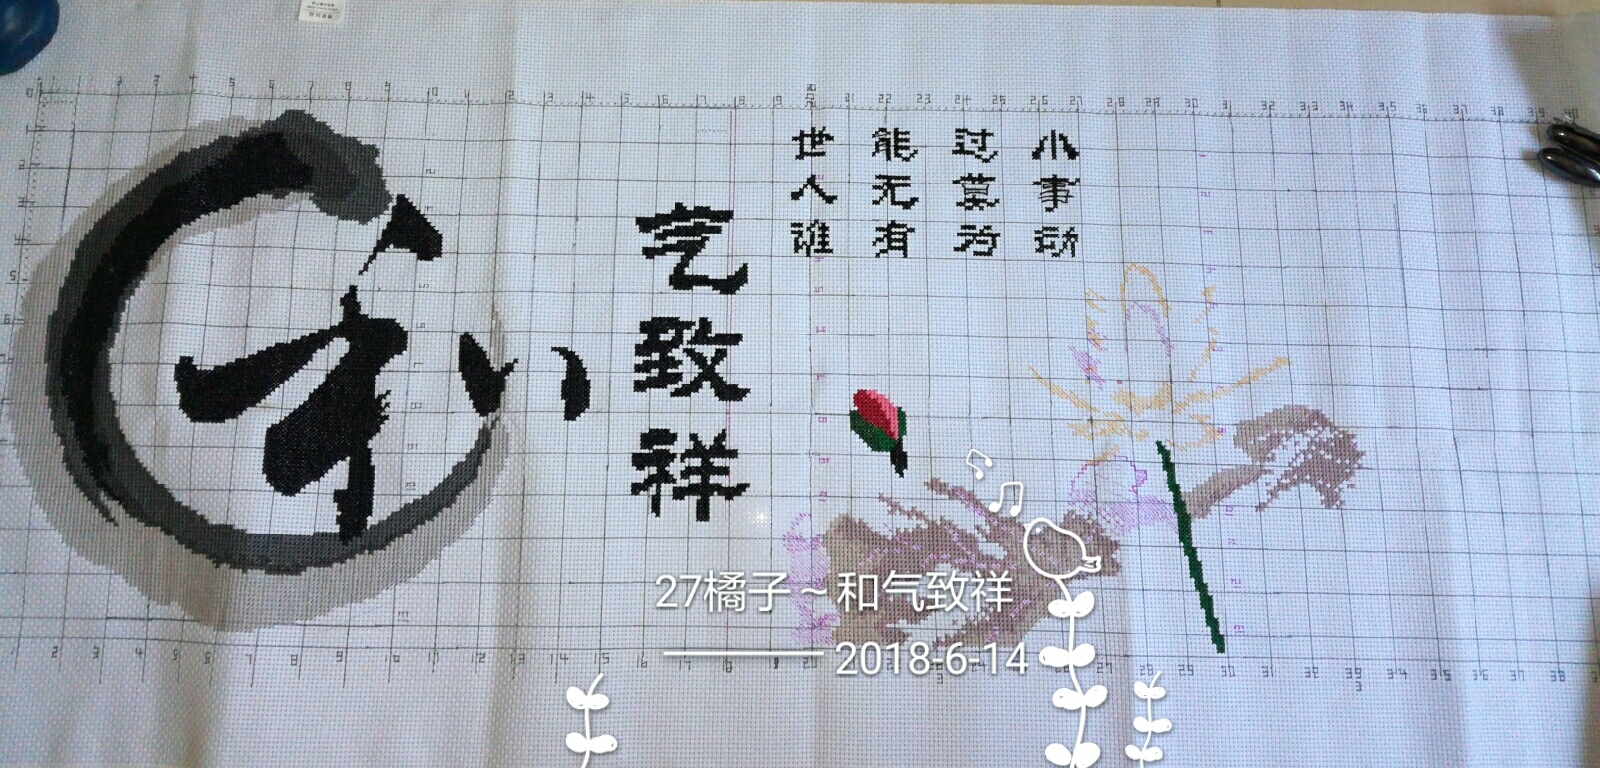 和
气致祥
世人谁
能无有
过莫为
小事动
27橘子~和气致祥
2018-6-14